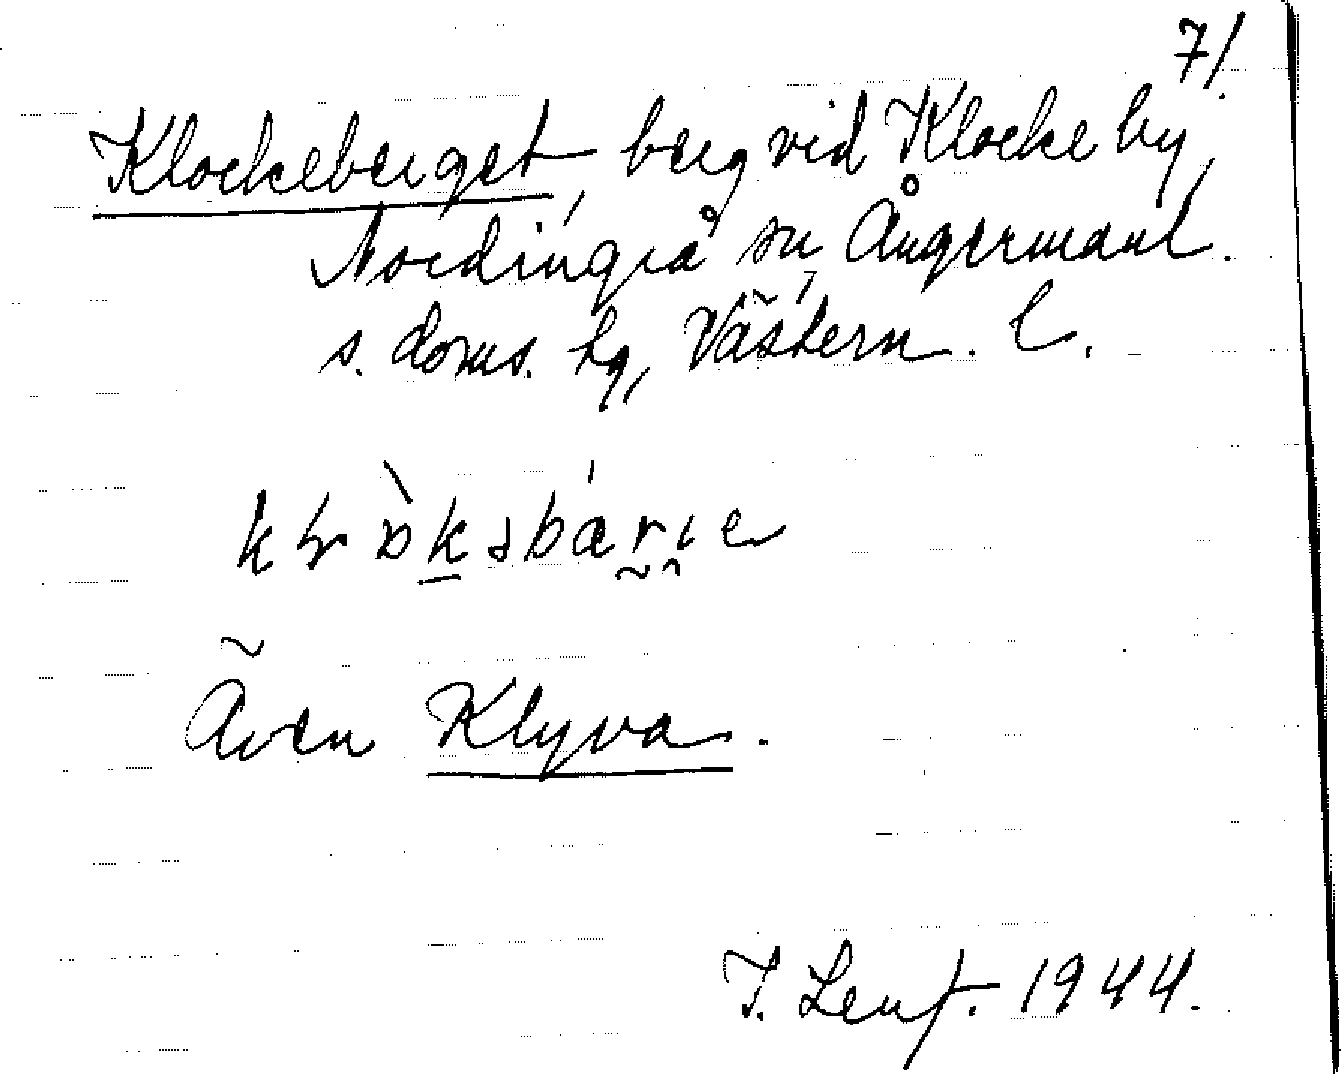 7/.
Klockeberget, berg vid Klocke by,
Nordingrå sn, Ångermanl.
s. doms. hg, Västern. l.
Även Klyva.
1944.